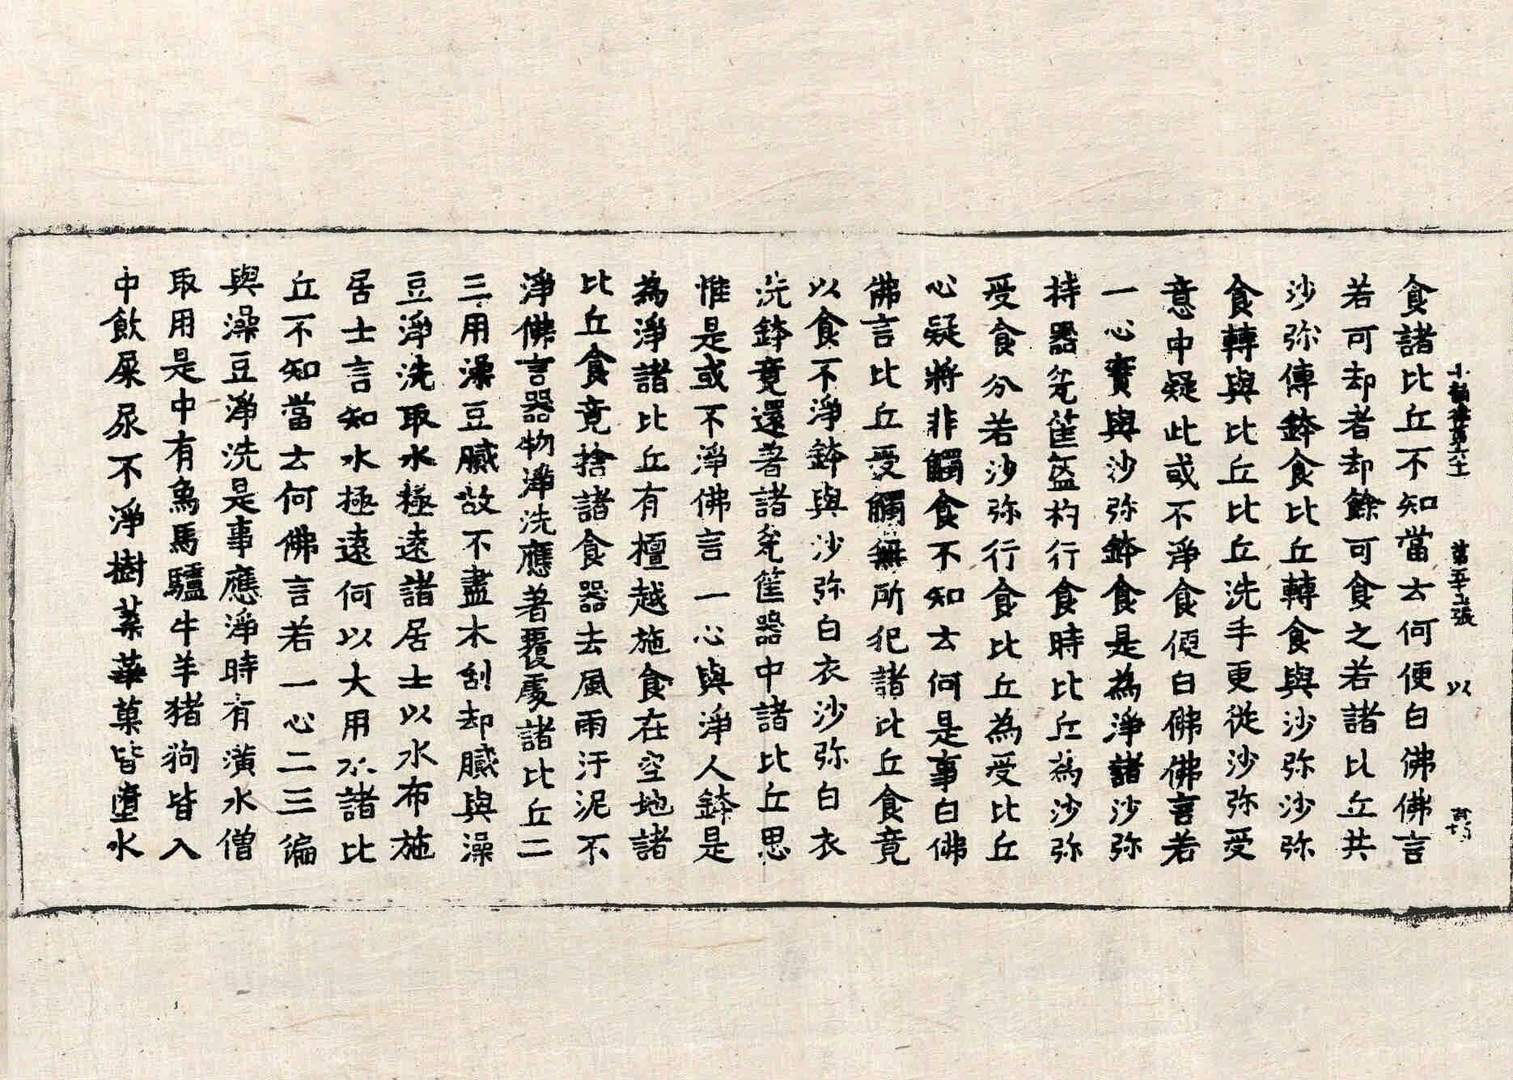 食諸比丘不知當去何便白佛佛言
若可却者却餘可食之若諸比丘共
沙弥傳鉢食比丘轉食與沙弥沙弥
食轉與比丘比丘洗手更従沙弥受
意中疑此或不淨食便白佛佛言若
一心實與沙弥鉢食是為淨諸沙弥
持器筐𥁊杓行食時比丘為沙弥
受食分若沙弥行食比丘為受比丘
心疑將非觸食不知去何是事白佛
佛言比丘受觸無所犯諸比丘食竟
以食不淨鉢與沙弥白衣沙弥白衣
洗鉢竟還著諸筐器中諸比丘思
惟是或不淨佛言一心與淨人鉢是
為淨諸比丘有檀越施食在空地諸
比丘食竟捨諸食器去風雨汙泥不
淨佛言器物淨洗應著覆處諸比丘二
三用澡豆膩故不盡木刮却膩與澡
豆淨洗取水極遠諸居士以水布施
居士言知水極遠何以大用水諸比
丘不知當去何佛言若一心二三徧
與澡豆淨洗是事應淨時有潢水僧
取用是中有象馬驢牛羊猪狗皆入
中飲屎尿不淨樹葉華菓皆墮水